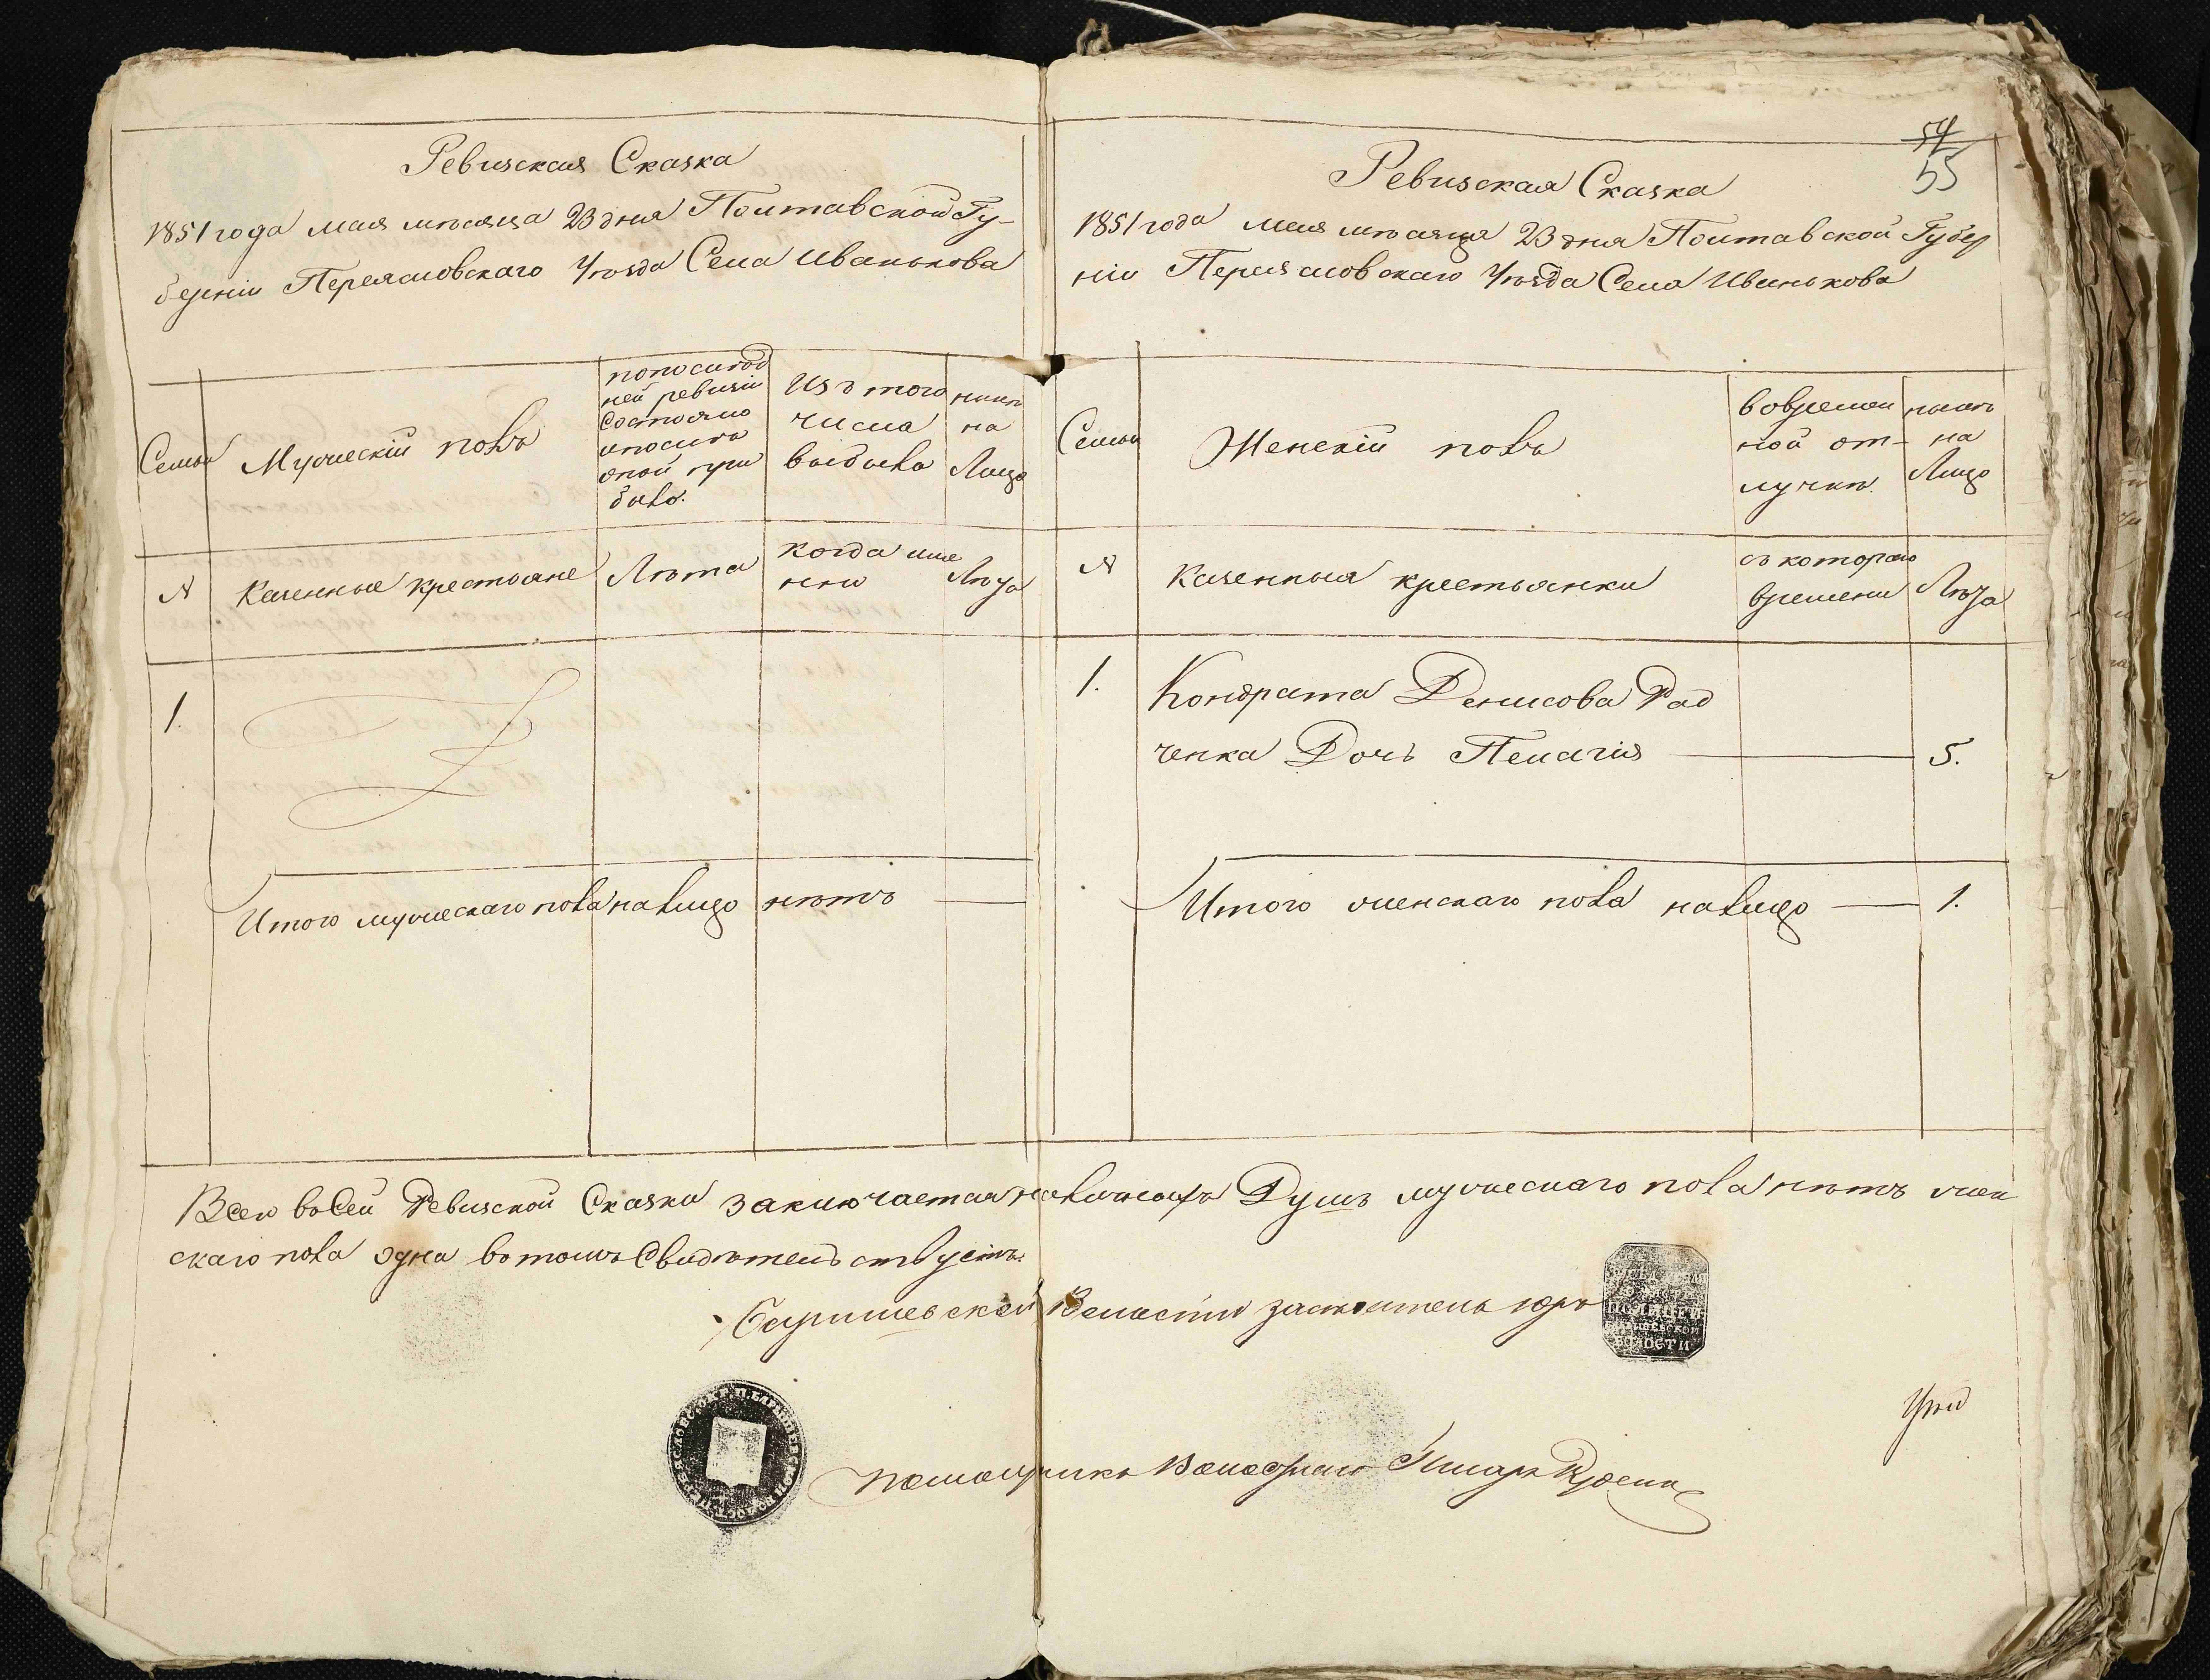 Ревизская Сказка
1851 года мая мѣсяца 23 дня Полтавской Гу-
берніи Переясловскаго Уѣзда Села Иванькова
Семьи
Мужескій полъ
по послѣд
ней ревизіи
Состояло
и послѣ
оной при
было.
Изъ того
числа
выбыло
нынѣ
на
Лицо
№
Казенные крестьяне
Лѣта
когда име
нно
Лѣта
1.
Итого мужескаго пола на лицо нѣтъ
54
55
Ревизская Сказка
1851 года мая мѣсяца 23 дня Полтавской Губер
ніи Переясловскаго Уѣзда Села Иванькова
Семьи
Женскій полъ
во времен
ной от-
лучкѣ.
нынѣ
на
Лицо
№
Казенныя крестьянки
съ котораго
времени
Лѣта
1.
Кондрата Денисова Рад
ченка Дочь Пелагія 5.
Итого женскаго пола на лицо 1.
Всего в сей Ревизской Сказки заключается наличныхъ Душъ мужескаго пола нѣтъ жен
скаго пола одна в томъ Свидѣтельствуемъ.
Барышевской Волости
ВОЛОСТИ
Помощникъ Волостнаго Писаря